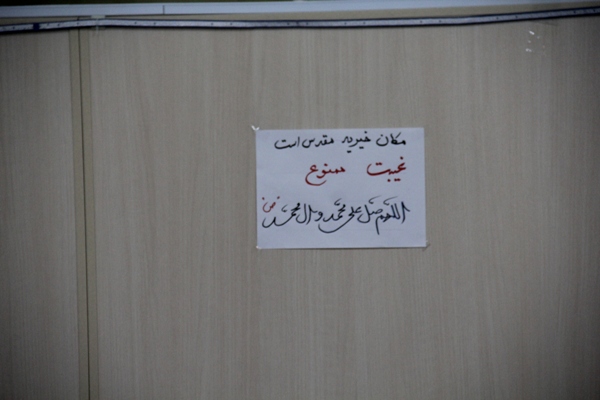 مکان خیریه مقدس است
غیبت ممنوع
اللهم صل علی محمد و ال محمد